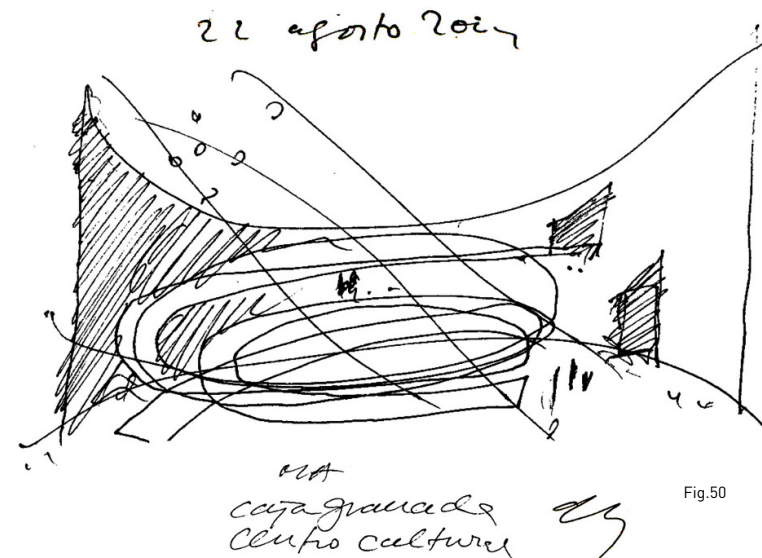 22 agosto
MA
caja granada
centro cultural
Fig.50